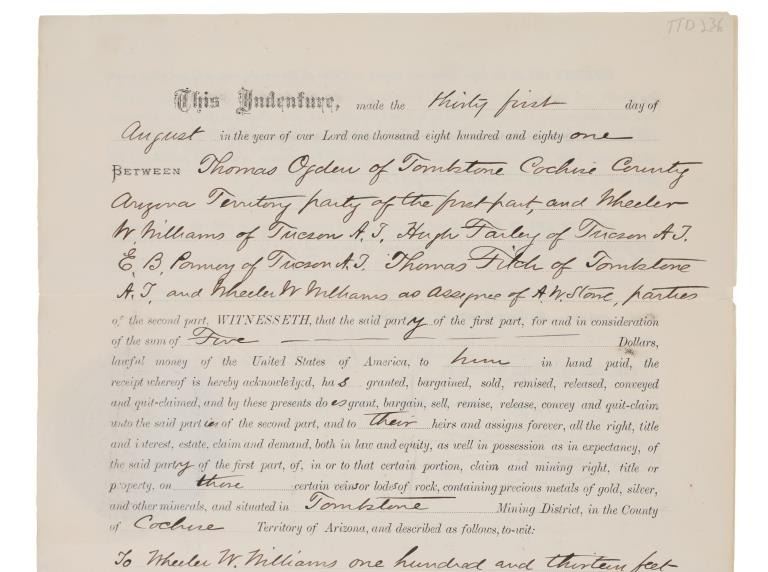 TTD 236
This Indenture, made the thirty first day of
August in the year of our Lord one thousand eight hundred and eighty one
BETWEEN Thomas Ogden of Tombstone Cochise County
Arizona Territory party of the first part, and Wheeler
W. Williams of Tucson A.T. Hugh Farley of Tucson A.T.
E. B. Pomroy of Tucson A.T. Thomas Fitch of Tombstone
A.T. and Wheeler W Williams as Assignee of A. W Stowe, parties
of the second part, WITNESSETH, that the said party of the first part, for and in consideration
of the sum of Five Dollars,
lawful money of the United States of America, to him in hand paid, the
receipt whereof is hereby acknowledged, has granted, bargained, sold, remised, released, conveyed
and quit-claimed, and by these presents does grant, bargain, sell, remise, release, convey and quit-claim
unto the said parties of the second part, and to their heirs and assigns forever, all the right, title
and interest, estate, claim and demand, both in law and equity, as well in possession as in expectancy, of
the said party of the first part, of, in or to that certain portion, claim and mining right, title or
property, on those certain veins or lodes of rock, containing precious metals of gold, silver,
and other minerals, and situated in Tombstone Mining District, in the County
of Cochise Territory of Arizona, and described as follows, to-wit:
To Wheeler W. Williams one hundred and thirteen feet